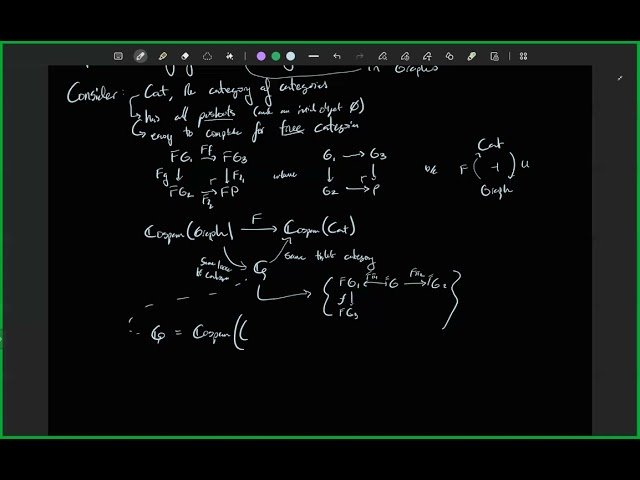 in Graphs
Consider: Cat, the category of categories
has all pushouts (and an initial object ∅)
easy to compute for free categories
FG₁ →Ff FG₃
Fg ↓ ↓
FG₂ → FP
where
G₁ → G₃
↓ ↓
G₂ → P
Cat
F ( ⊣ ) U
Graph
Cospan(Graph) →F Cospan(Cat)
same
some triple category
FG₁ G FG₂
f ↓
FG₃
ℂ = Cospan((